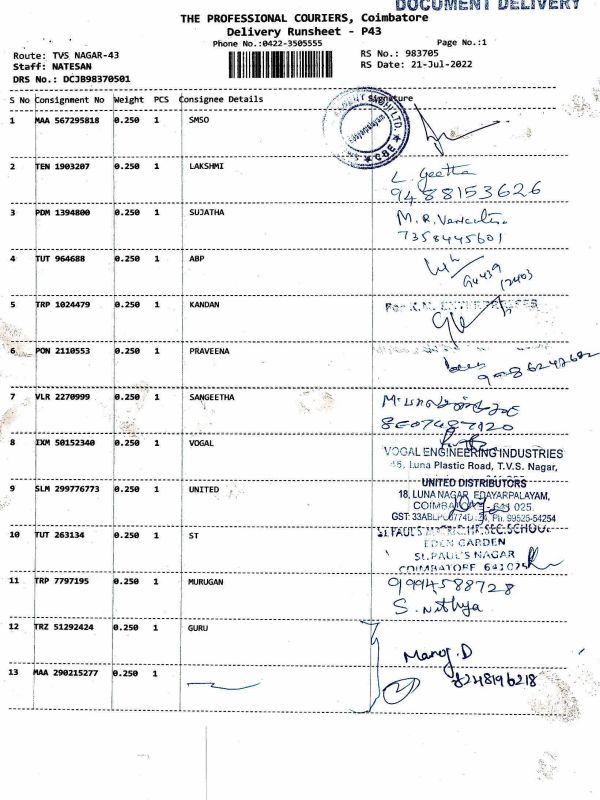 DOCUMENT DELIVERY
THE PROFESSIONAL COURIERS, Coimbatore
Delivery Runsheet - P43
Phone No.:0422-3505555
Page No.:1
Route: TVS NAGAR-43
RS No.: 983705
Staff: NATESAN
RS Date: 21-Jul-2022
DRS No.: DCJB98370501
S No Consignment No Weight PCS Consignee Details Signature
1 MAA 567295818 0.250 1 SMSO
2 TEN 1903207 0.250 1 LAKSHMI
L. Geetha
9488153626
3 PDM 1394800 0.250 1 SUJATHA
M.R.
7358445601
4 TUT 964688 0.250 1 ABP
5 TRP 1024479 0.250 1 KANDAN
For K.M. ENTERPRISES
6 PON 2110553 0.250 1 PRAVEENA
7 VLR 2270999 0.250 1 SANGEETHA
8 IXM 50152340 0.250 1 VOGAL
VOGAL ENGINEERING INDUSTRIES
45, Luna Plastic Road, T.V.S. Nagar,
9 SLM 299776773 0.250 1 UNITED
UNITED DISTRIBUTORS
18, LUNA NAGAR, EDAYARPALAYAM,
COIMBATORE - 641 025.
Ph. 99525-54254
10 TUT 263134 0.250 1 ST
ST.PAUL'S MATRIC.HR.SEC.SCHOOL
EDEN GARDEN
ST.PAUL'S NAGAR
COIMBATORE 641 025
11 TRP 7797195 0.250 1 MURUGAN
9994588728
S. Nithya
12 TRZ 51292424 0.250 1 GURU
Manoj.D
8248196218
13 MAA 290215277 0.250 1